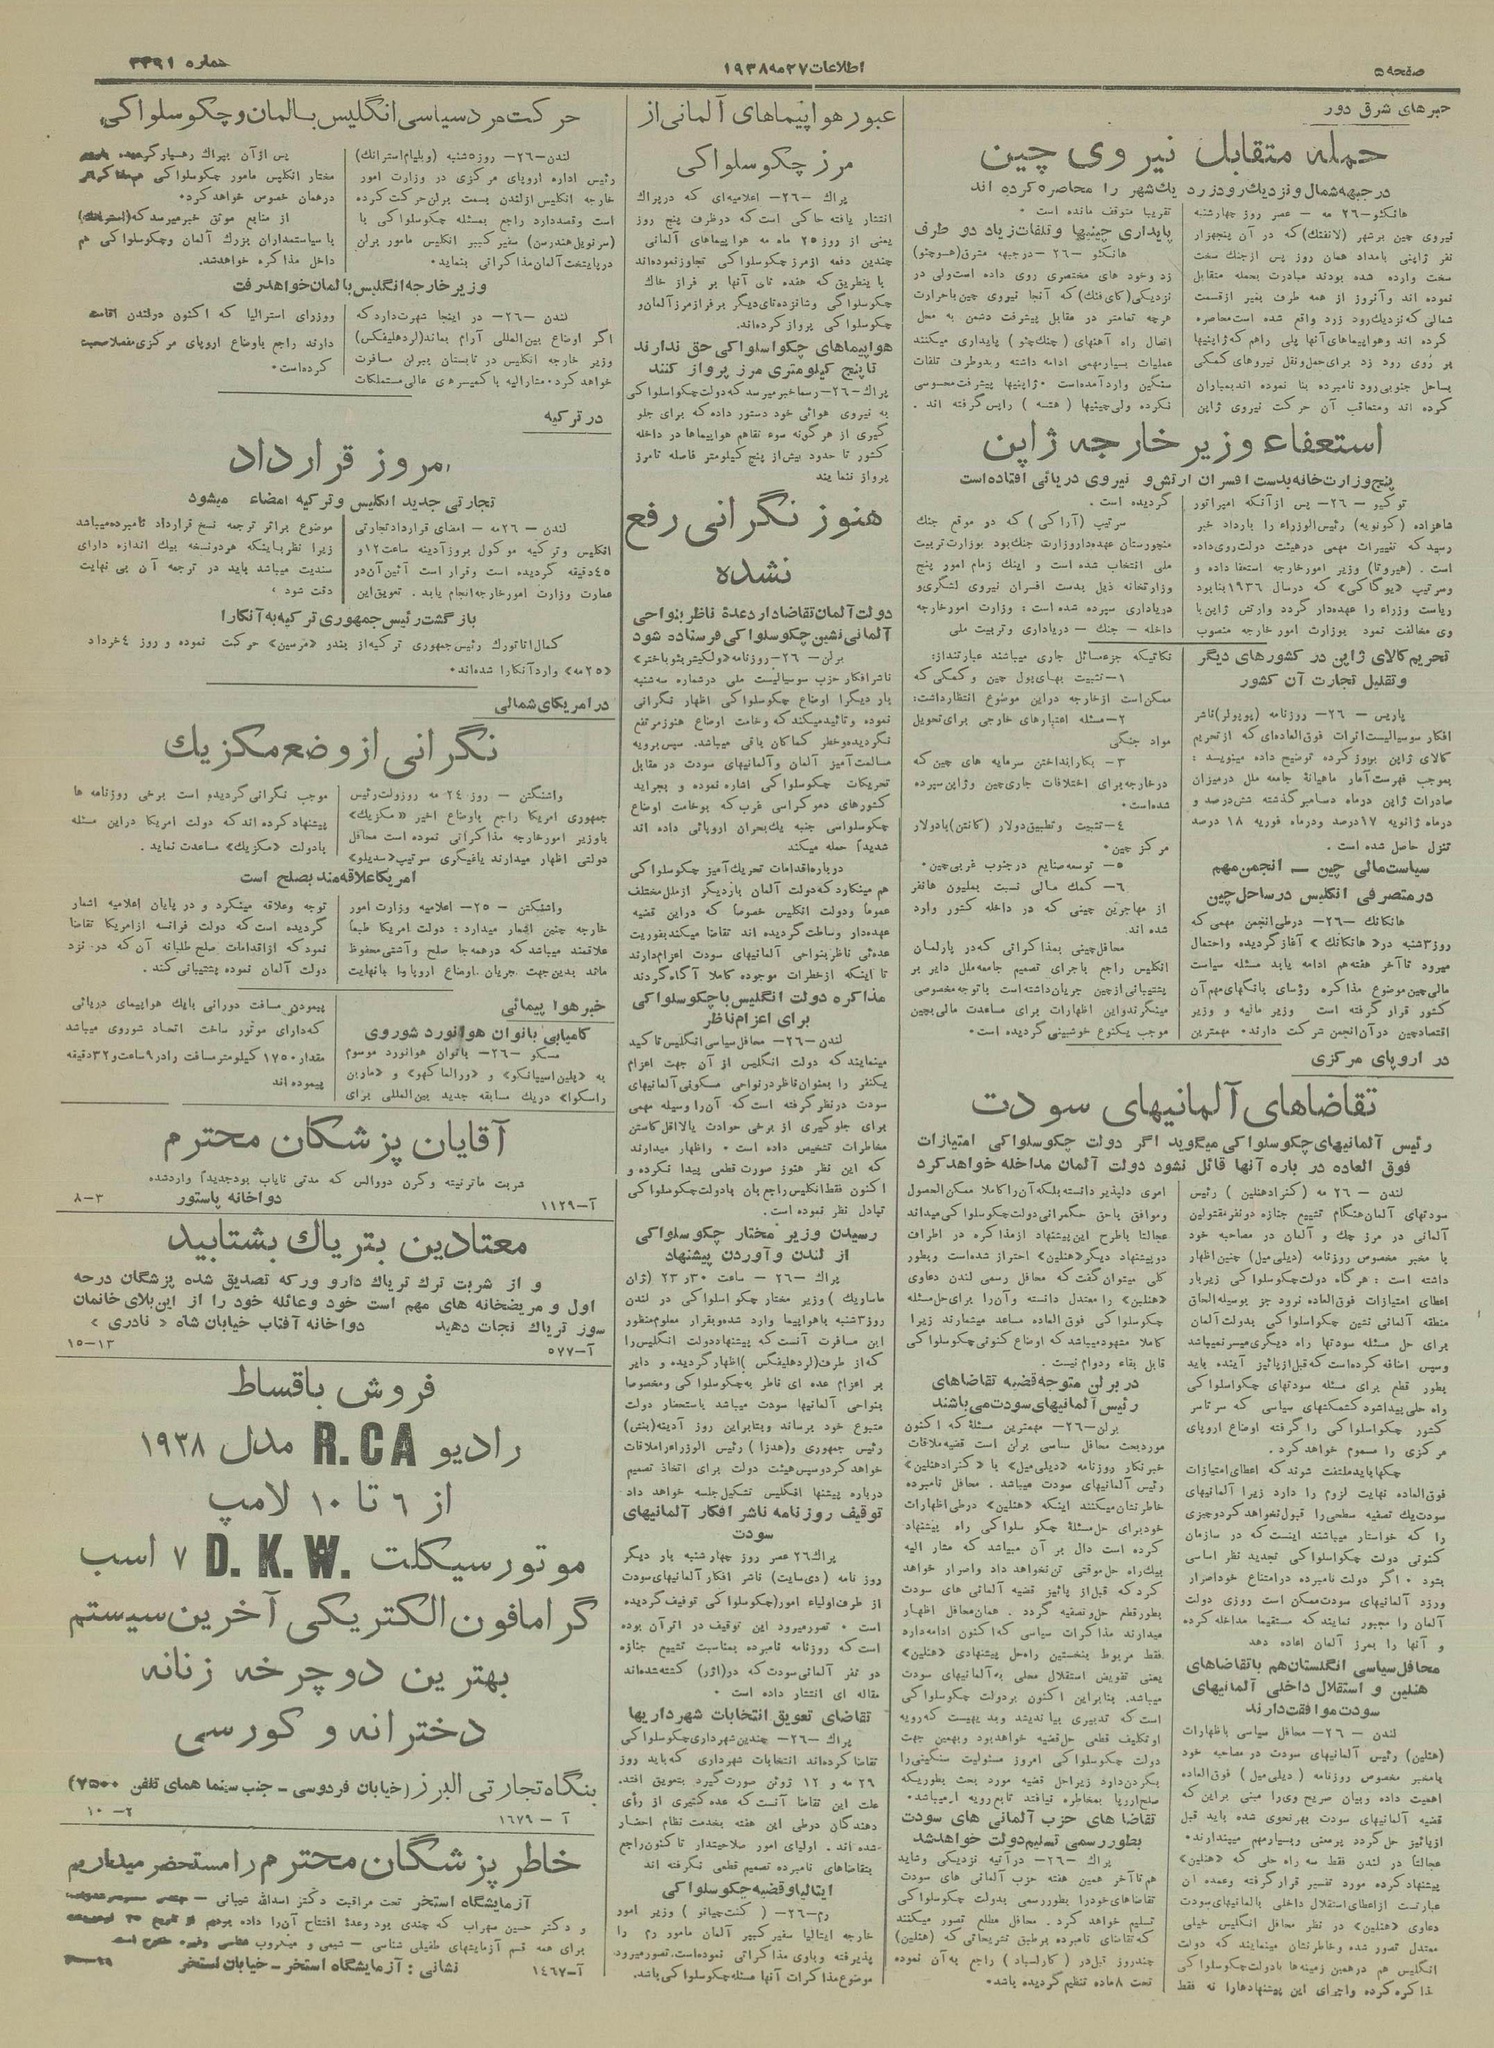 صفحه ۵
اطلاعات ۲۷ مه ۱۹۳۸
شماره ۳۳۹۱
خبرهای شرق دور
حمله متقابل نیروی چین
در جبهه شمال و نزدیک رود زرد یک شهر را محاصره کرده اند
هانکئو -۲۶ مه - عصر روز چهارشنبه
نیروی چین بر شهر (لانفتك) که در آن پنجهزار
نفر ژاپنی بامداد همان روز پس از جنك سخت
سخت وارده شده بودند مبادرت بحمله متقابل
نموده اند و آنروز از همه طرف بغیر از قسمت
شمالی که نزدیك رود زرد واقع شده است محاصره
کرده اند و هواپیماهای آنها پلی راهم که ژاپنیها
بر روی رود زد برای حمل و نقل نیروهای کمکی
بساحل جنوبی رود نامبرده بنا نموده اند بمباران
کرده اند و متعاقب آن حرکت نیروی ژاپن
تقریبا متوقف مانده است .
پایداری چینیها و تلفات زیاد دو طرف
هانکئو -۲۶- در جبهه مشرق (هسوچئو)
زد وخود های مختصری روی داده است ولی در
نزدیکی (کای فنك) که آنجا نیروی چین با حرارت
هرچه تمامتر در مقابل پیشرفت دشمن به محل
اتصال راه آهنهای (چنك چئو) پایداری میکنند
عملیات بسیار مهمی ادامه داشته و بدو طرف تلفات
سنگین وارد آمده است ۰ ژاپنیها پیشرفت محسوسی
نکرده ولی چینیها ( هتسه ) را پس گرفته اند .
استعفاء وزیر خارجه ژاپن
پنج وزارت خانه بدست افسران ارتش و نیروی دریائی افتاده است
توکیو - ۲۶- پس از آنکه امپراتور
شاهزاده (کونویه) رئیس الوزراء را بارداد خبر
رسید که تغییرات مهمی در هیئت دولت روی داده
است . (هیروتا) وزیر امور خارجه استعفا داده و
وسرتیپ «یوگاکی» که در سال ۱۹۳۶ بنا بود
ریاست وزراء را عهده دار گردد و ارتش ژاپن با
وی مخالفت نمود بوزارت امور خارجه منصوب
گردیده است .
سرتیپ (آراکی) که دو موقع جنك
منچورستان عهده دار وزارت جنك بود بوزارت تربیت
ملی انتخاب شده است و اینك زمام امور پنج
وزارتخانه ذیل بدست افسران نیروی لشگری و
دریاداری سپرده شده است : وزارت امور خارجه
داخله - جنك - دریاداری و تربیت ملی
تحریم کالای ژاپن در کشورهای دیگر
و تقلیل تجارت آن کشور
پاریس - ۲۶- روزنامه (پوپولر) ناشر
افکار سوسیالیست اثرات فوق العاده ای که از تحریم
کالای ژاپن بروز کرده توضیح داده مینویسد :
بموجب فهرست آمار ماهیانهٔ جامعه ملل در میزان
صادرات ژاپن در ماه دسامبر گذشته شش درصد و
درماه ژانویه ۱۷ درصد و درماه فوریه ۱۸ درصد
تنزل حاصل شده است .
سیاست مالی چین - انجمن مهم
در متصرفی انگلیس در ساحل چین
هانکانك -۲۶- در طی انجمن مهمی که
روز ۳ شنبه در « هانکانك » آغاز گردیده و احتمال
میرود تا آخر هفته هم ادامه یابد مسئله سیاست
مالی چین موضوع مذاکره رؤسای بانکهای مهم آن
کشور قرار گرفته است وزیر مالیه و وزیر
اقتصاد چین در آن انجمن شرکت دارند ۰ مهمترین
نکاتیکه جزء مسائل جاری میباشند عبارتند از :
۱- تثبیت بهای پول چین و کمکی که
ممکن است از خارجه در این موضوع انتظار داشت:
۲- مسئله اعتبارهای خارجی برای تحویل
مواد جنگی
۳- بکار انداختن سرمایه های چین که
در خارجه برای اختلافات جاری چین و ژاپن سپرده
شده است ۰
۴- تثبیت و تطبیق دولار (کانتن) با دولار
مرکز چین ۰
۵- توسعه صنایع در جنوب غربی چین ۰
۶- کمك مالی نسبت بملیون ها نفر
از مهاجرین چینی که در داخله کشور وارد
شده اند
محافل چینی بمذاکراتی که در پارلمان
انگلیس راجع باجرای تصمیم جامعه ملل دایر بر
پشتیبانی از چین جریان داشته است با توجه مخصوصی
مینگرند و این اظهارات برای مساعدت مالی بچین
موجب یکنوع خوشبینی گردیده است ۰
در اروپای مرکزی
تقاضاهای آلمانیهای سودت
رئیس آلمانیهای چکوسلواکی میگوید اگر دولت چکوسلواکی امتیازات
فوق العاده در باره آنها قائل نشود دولت آلمان مداخله خواهد کرد
لندن - ۲۶ مه (کنراد هنلین) رئیس
سودتهای آلمان هنگام تشییع جنازه دو نفر مقتولین
آلمانی در مرز چك و آلمان در مصاحبه خود
با مخبر مخصوص روزنامه (دیلی میل) چنین اظهار
داشته است : هر گاه دولت چکوسلواکی زیر بار
اعطای امتیازات فوق العاده نرود جز بوسیله الحاق
منطقه آلمانی نشین چکوسلواکی بدولت آلمان
برای حل مسئله سودتها راه دیگری میسر نمیباشد
وسپس اضافه کرده است که قبل از پائیز آینده باید
بطور قطع برای مسئله سودتهای چکوسلواکی
راه حلی پیدا شود کشمکشهای سیاسی که سرتاسر
کشور چکواسلواکی را گرفته اوضاع اروپای
مرکزی را مسموم خواهد کرد .
چکها باید ملتفت شوند که اعطای امتیازات
فوق العاده نهایت لزوم را دارد زیرا آلمانیهای
سودت یك تصفیه سطحی را قبول نخواهد کرد و چیزی
را که خواستار میباشند اینست که در سازمان
کنونی دولت چکواسلواکی تجدید نظر اساسی
بشود ۰ اگر دولت نامبرده در امتناع خود اصرار
ورزد آلمانیهای سودت ممکن است روزی دولت
آلمان را مجبور نمایند که مستقیما مداخله کرده
و آنها را بمرز آلمان اعاده دهد
محافل سیاسی انگلستان هم با تقاضاهای
هنلین و استقلال داخلی آلمانیهای
سودت موافقت دارند
لندن - ۲۶- محافل سیاسی باظهارات
(هنلین) رئیس آلمانیهای سودت در مصاحبه خود
با مخبر مخصوص روزنامه (دیلی میل) فوق العاده
اهمیت داده و بیان صریح وی را مبنی براین که
قضیه آلمانیهای سودت بهر نحوی شده باید قبل
از پائیز حل گردد پر معنی و بسیار مهم میپندارند ۰
عجالتاً در لندن فقط سه راه حلی که «هنلین»
پیشنهاد کرده مورد تفسیر قرار گرفته و عمده آن
عبارتست از اعطای استقلال داخلی بآلمانیهای سودت
دعاوی «هنلین» در نظر محافل انگلیس خیلی
معتدل تصور شده و خاطر نشان مینمایند که دولت
انگلیس هم در همین زمینه ها با دولت چکوسلواکی
مذاکره کرده و اجرای این پیشنهادها را نه فقط
امری دلپذیر دانسته بلکه آن را کاملا ممکن الحصول
و موافق با حق حکمرانی دولت چکوسلواکی میداند
عجالتا باطرح این پیشنهاد از مذاکره در اطراف
دو پیشنهاد دیگر «هنلین» احتراز شده است و بطور
کلی میتوان گفت که محافل رسمی لندن دعاوی
«هنلین» را معتدل دانسته و آن را برای حل مسئله
چکوسلواکی فوق العاده مساعد میشمارند زیرا
کاملا مشهود میباشد که اوضاع کنونی چکوسلواکی
قابل بقاء و دوام نیست .
در برلن متوجه قضیه تقاضاهای
رئیس آلمانیهای سودت می باشند
برلن - ۲۶- مهمترین مسئلهٔ که اکنون
مورد بحث محافل سیاسی برلن است قضیه ملاقات
خبرنگار روزنامه «دیلی میل» با «کنراد هنلین»
رئیس آلمانیهای سودت میباشد . محافل نامبرده
خاطر نشان میکنند اینکه «هنلین» در طی اظهارات
خود برای حل مسئلهٔ چکو سلواکی راه پیشنهاد
کرده است دال بر آن میباشد که مشار الیه
بیك راه حل موقتی تن نخواهد داد و اصرار خواهد
کرد که قبل از پائیز قضیه آلمانی های سودت
بطور قطع حل و تصفیه گردد . همان محافل اظهار
میدارند مذاکرات سیاسی که اکنون ادامه دارد
فقط مربوط بنخستین راه حل پیشنهادی «هنلین»
یعنی تفویض استقلال محلی به آلمانیهای سودت
میباشد. بنابراین اکنون بر دولت چکوسلواکی
است که تدبیری بیاندیشد و بد یهیست که رویه
او تکلیف قطعی حل قضیه خواهد بود و بهمین جهت
دولت چکوسلواکی امروز مسئولیت سنگینی را
بگردن دارد زیرا حل قضیه مورد بحث بطوریکه
صلح اروپا بمخاطره نیافتد تابع رویه او میباشد .
تقاضا های حزب آلمانی های سودت
بطور رسمی تسلیم دولت خواهد شد
پراك -۲۶- در آتیه نزدیکی و شاید
هم تا آخر همین هفته حزب آلمانی های سودت
تقاضاهای خود را بطور رسمی بدولت چکوسلواکی
تسلیم خواهد کرد . محافل مطلع تصور میکنند
که تقاضای نامبرده بر طبق تشریحاتی که (هنلین)
چند روز قبل در ( کارلسباد ) راجع به آن نموده
تحت ۸ ماده تنظیم گردیده باشد ۰
عبور هواپیماهای آلمانی از
مرز چکوسلواکی
پراك -۲۶- اعلامیه ای که در پراك
انتشار یافته حاکی است که در ظرف پنج روز
یعنی از روز ۲۵ ماه مه هواپیماهای آلمانی
چندین دفعه از مرز چکوسلواکی تجاوز نموده اند
با ینطریق که هفده تای آنها بر فراز خاك
چکوسلواکی و شانزده تای دیگر بر فراز مرز آلمان و
چکوسلواکی پرواز کرده اند.
هواپیماهای چکواسلواکی حق ندارند
تا پنج کیلومتری مرز پرواز کنند
پراك -۲۶- رسما خبر میرسد که دولت چکواسلواکی
به نیروی هوائی خود دستور داده که برای جلو
گیری از هر گونه سوء تفاهم هواپیماها در داخله
کشور تا حدود بیش از پنج کیلومتر فاصله تا مرز
پرواز ننمایند
هنوز نگرانی رفع
نشده
دولت آلمان تقاضا دارد عدهٔ ناظر بنواحی
آلمانی نشین چکوسلواکی فرستاده شود
برلن - ۲۶- روزنامه «ولکیشر بئوباختر»
ناشر افکار حزب سوسیالیست ملی در شماره سه شنبه
بار دیگر از اوضاع چکوسلواکی اظهار نگرانی
نموده و تائید میکند که وخامت اوضاع هنوز مرتفع
نگردیده و خطر کماکان باقی میباشد. سپس برویه
مسالمت آمیز آلمان و آلمانیهای سودت در مقابل
تحریکات چکوسلواکی اشاره نموده و بجراید
کشورهای دمو کراسی غرب که بوخامت اوضاع
چکوسلواسی جنبه یك بحران اروپائی داده اند
شدیداً حمله میکند
درباره اقدامات تحریك آمیز چکوسلواکی
هم مینگارد که دولت آلمان بار دیگر از ملل مختلف
عموماً و دولت انگلیس خصوصاً که دراین قضیه
عهده دار وساطت گردیده اند تقاضا میکند بفوریت
عده ئی ناظر بنواحی آلمانیهای سودت اعزام دارند
تا اینکه از خطرات موجوده کاملا آگاه گردند
مذاکره دولت انگلیس با چکوسلواکی
برای اعزام ناظر
لندن -۲۶- محافل سیاسی انگلیس تا کید
مینمایند که دولت انگلیس از آن جهت اعزام
یکنفر را بعنوان ناظر در نواحی مسکونی آلمانیهای
سودت در نظر گرفته است که آن را وسیله مهمی
برای جلوگیری از برخی حوادث یا لااقل کاستن
مخاطرات تشخیص داده است ۰ و اظهار میدارند
که این نظر هنوز صورت قطعی پیدا نکرده و
اکنون فقط انگلیس راجع بان با دولت چکوسلواکی
تبادل نظر نموده است .
رسیدن وزیر مختار چکوسلواکی
از لندن و آوردن پیشنهاد
پراك -۲۶- ساعت ۳۰ و ۲۳ (ژان
ماساریك) وزیر مختار چکواسلواکی در لندن
روز ۳ شنبه با هواپیما وارد شده و بقرار معلوم منظور
این مسافرت آنست که پیشنهاد دولت انگلیس را
که از طرف (لرد هلیفکس) اظهار گردیده و دایر
بر اعزام عده ای ناظر به چکوسلواکی و مخصوصا
بنواحی آلمانیها سودت میباشد باستحضار دولت
متبوع خود برساند و بنابراین روز آدینه (بنش)
رئیس جمهوری و (هدزا) رئیس الوزراء ملاقات
خواهد کرد و سپس هیئت دولت برای اتخاذ تصمیم
درباره پیشنها انگلیس تشکیل جلسه خواهد داد
توقیف روزنامه ناشر افکار آلمانیهای
سودت
پراك ۲۶ عصر روز چهارشنبه بار دیگر
روز نامه (دی سایت) ناشر افکار آلمانیهای سودت
از طرف اولیاء امور (چکوسلواکی توقیف گردیده
است ۰ تصور میرود این توقیف در اثر آن بوده
است که روزنامه نامبرده بمناسبت تشییع جنازه
دو نفر آلمانی سودت که در (اژر) کشته شده اند
مقاله ای انتشار داده است ۰
تقاضای تعویق انتخابات شهرداریها
پراك -۲۶- چندین شهرداری چکوسلواکی
تقاضا کرده اند انتخابات شهرداری که باید روز
۲۹ مه و ۱۲ ژوئن صورت گیرد بتعویق افتد.
علت این تقاضا آنست که عده کثیری از رأی
دهندگان در طی این هفته بخدمت نظام احضار
شده اند . اولیای امور صلاحیتدار تا کنون راجع
بتقاضاهای نامبرده تصمیم قطعی نگرفته اند
ایتالیا و قضیه چکوسلواکی
رم -۲۶- ( کنت چیانو ) وزیر امور
خارجه ایتالیا سفیر کبیر آلمان مامور رم را
پذیرفته و باوی مذاکراتی نموده است. تصور میرود
موضوع مذاکرات آنها مسئله چکوسلواکی باشد.
حرکت مرد سیاسی انگلیس بآلمان و چکوسلواکی
لندن -۲۶- روز ۵ شنبه (ویلیام استرانك)
رئیس اداره اروپای مرکزی در وزارت امور
خارجه انگلیس از لندن بسمت برلن حرکت کرده
است و قصد دارد راجع بمسئله چکوسلواکی با
(سر نویل هندرسن) سفیر کبیر انگلیس مامور برلن
در پایتخت آلمان مذاکراتی بنماید ۰
پس از آن بپراك رهسپار گردیده
مختار انگلیس مامور چکوسلواکی هم
در همان خصوص خواهد کرد ۰
از منابع موثق خبر میرسد که (استرانك)
با سیاستمداران بزرك آلمان و چکوسلواکی هم
داخل مذاکره خواهد شد.
وزیر خارجه انگلیس بآلمان خواهد رفت
لندن -۲۶- در اینجا شهرت دارد که
اگر اوضاع بین المللی آرام بماند (لرد هلیفکس)
وزیر خارجه انگلیس در تابستان ببرلن مسافرت
خواهد کرد ۰ مشارالیه با کمیسرهای عالی مستملکات
و وزرای استرالیا که اکنون در لندن اقامت
دارند راجع باوضاع اروپای مرکزی مفصلا صحبت
کرده است ۰
در ترکیه
امروز قرارداد
تجارتی جدید انگلیس و ترکیه امضاء میشود
لندن -۲۶ مه - امضای قرارداد تجارتی
انگلیس و ترکیه موکول بروز آدینه ساعت ۱۲ و
۴۵ دقیقه گردیده است و قرار است آئین آن در
عمارت وزارت امور خارجه انجام یابد. تعویق این
موضوع براثر ترجمه نسخ قرارداد نامبرده میباشد
زیرا نظر باینکه هر دو نسخه بیك اندازه دارای
سندیت میباشد باید در ترجمه آن بی نهایت
دقت شود .
بازگشت رئیس جمهوری ترکیه به آنکارا
کمال اتاتورك رئیس جمهوری ترکیه از بندر «مرسین» حرکت نموده و روز ۴ خرداد
«۲۵ مه» وارد آنکارا شده اند ۰
در امریکای شمالی
نگرانی از وضع مکزیك
واشنگتن - روز ۲۴ مه روزولت رئیس
جمهوری امریکا راجع باوضاع اخیر «مکزیك»
با وزیر امور خارجه مذاکراتی نموده است محافل
دولتی اظهار میدارند یاغیگری سرتیپ «سدیلو»
موجب نگرانی گردیده است برخی روزنامه ها
پیشنهاد کرده اند که دولت امریکا در این مسئله
با دولت «مکزیك» مساعدت نماید .
امریکا علاقه مند بصلح است
واشنگتن - ۲۵- اعلامیه وزارت امور
خارجه چنین اشعار میدارد : دولت امریکا طبعاً
علاقمند میباشد که در همه جا صلح و آشتی محفوظ
ماند بدین جهت جریان اوضاع اروپا را با نهایت
توجه و علاقه مینگرد و در پایان اعلامیه اشعار
گردیده است که دولت فرانسه از امریکا تقاضا
نمود که از اقدامات صلح طلبانه آن که در نزد
دولت آلمان نموده پشتیبانی کند.
خبر هوا پیمائی
کامیابی بانوان هوانورد شوروی
مسکو -۲۶- بانوان هوانورد موسوم
به «پلین اسیپانکو» و «ورالماکهو» و «مارین
راسکوا» در یك مسابقه جدید بین المللی برای
پیمودن مسافت دورانی بایك هواپیمای دریائی
که دارای موتور ساخت اتحاد شوروی میباشد
مقدار ۱۷۵۰ کیلومتر مسافت را در ۹ ساعت و ۳۲ دقیقه
پیموده اند
آقایان پزشگان محترم
شربت ماترنیته و گرن دووالس که مدتی نایاب بود جدیداً وارد شده
آ-۱۱۲۹
دواخانه پاستور
۸-۳
معتادین بتریاك بشتابید
و از شربت ترك تریاك دارو ورکه تصدیق شده پزشگان درجه
اول و مریضخانه های مهم است خود و عائله خود را از این بلای خانمان
سوز تریاك نجات دهید
دواخانه آفتاب خیابان شاه « نادری »
آ-۵۷۷
۱۵-۱۳
فروش باقساط
رادیو R.CA مدل ۱۹۳۸
از ۶ تا ۱۰ لامپ
موتورسیکلت D. K. W. ۷ اسب
گرامافون الکتریکی آخرین سیستم
بهترین دوچرخه زنانه
دخترانه و کورسی
بنگاه تجارتی البرز (خیابان فردوسی - جنب سینما همای تلفن ۷۵۰۰)
آ - ۱۶۷۹
۱۰-۲
خاطر پزشگان محترم را مستحضر میداریم
آزمایشگاه استخر تحت مراقبت دکتر اسدالله شیبانی -
و دکتر حسین سهراب که چندی بود وعدهٔ افتتاح آن را داده بودیم از تاریخ
برای همه قسم آزمایشهای طفیلی شناسی - شیمی و میکروب شناسی وغیره مفتوح است
آ-۱۴۶۷
نشانی : آزمایشگاه استخر - خیابان استخر